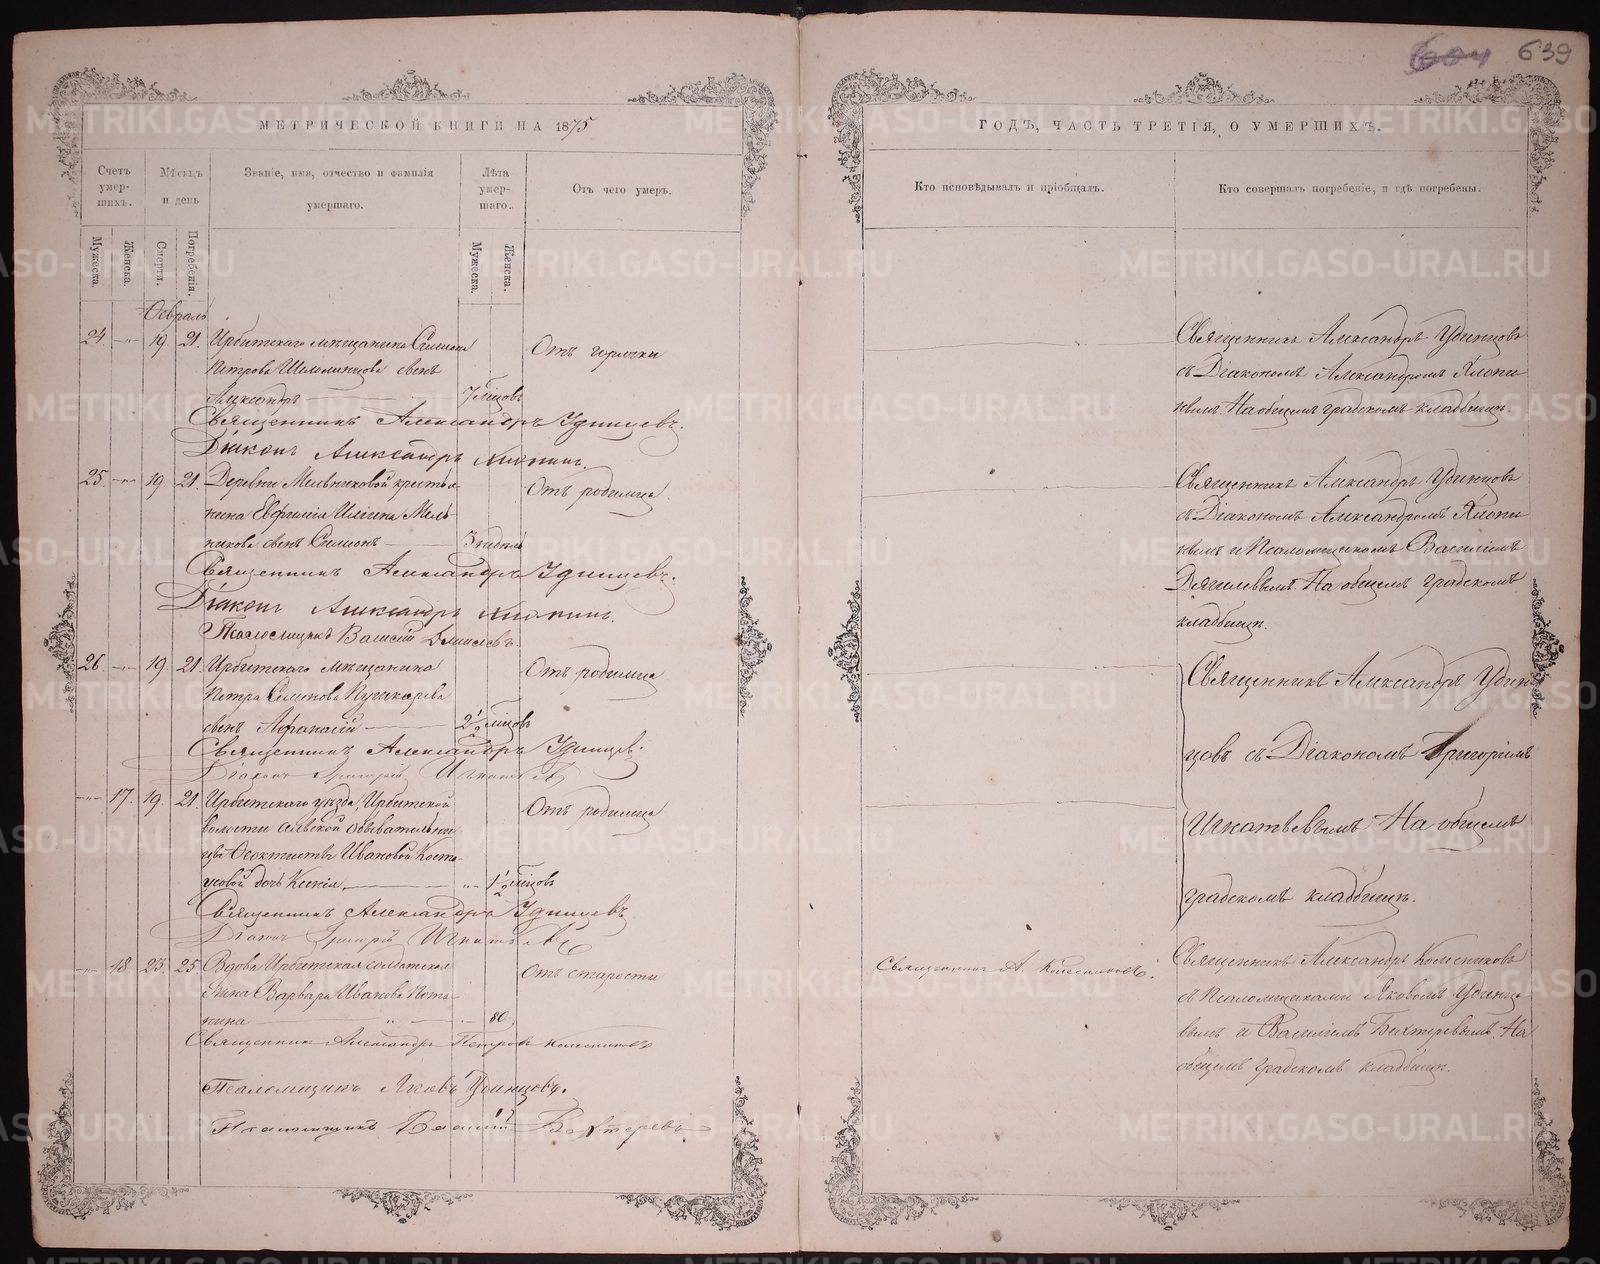 604 639
МЕТРИЧЕСКОЙ КНИГИ НА 1875
Счетъ умер-шихъ.
Мѣсяцъ и день
Званіе, имя, отчество и фамилія умершаго.
Лѣта умер-шаго.
Отъ чего умеръ.
Мужеска.
Женска.
Смерти.
Погребенія.
Мужеска.
Женска.
Февраль
24. -"- 19. 21. Ирбитскаго мѣщанина Симиона Отъ горячки
Петрова Шеломенцова сынъ
Александръ 7 мѣсцовъ
Священникъ Александръ Удинцевъ.
Діаконъ Александръ Хлопинъ.
25. -"- 19 21. Деревни Мельниковой крестья- Отъ родимца.
нина Евфимія Ильина Мель-
никова сынъ Симионъ 3 недель
Священникъ Александръ Удинцевъ.
Діаконъ Александръ Хлопинъ.
Псаломщикъ Василій
26 -"- 19 21. Ирбитского мѣщанина Отъ родимца
Петра Семенова Пушкарева
сынъ Афанасій 2½ мѣсцовъ
Священникъ Александръ Удинцев.
Діаконъ Григорій Игнатьевъ
-"- 17. 19. 21. Ирбитскаго уѣзда, Ирбитской Отъ родимца
волости сельской обывательни-
цы Феоктисты Ивановой Косто-
усовой дочь Ксенія. -"- 1½ мѣсцовъ
Священникъ Александръ Удинцевъ
Діаконъ Григорій Игнатьевъ
-"- 18 23. 25. Вдова Ирбитская солдатская Отъ старости
жена Варвара Иванова
80,
Священникъ Александръ Петровъ Колесниковъ
Псаломщикъ Яковъ Удинцовъ.
Псаломщикъ Василій Бехтеревъ
ГОДЪ, ЧАСТЬ ТРЕТІЯ, О УМЕРШИХЪ.
Кто исповѣдывалъ и пріобщалъ.
Кто совершалъ погребеніе, и гдѣ погребены.
Священникъ Александръ Удинцовъ
съ Діакономъ Александромъ Хлопи-
нымъ. На общемъ градскомъ кладбищѣ.
Священникъ Александръ Удинцовъ
съ Діакономъ Александромъ Хлопи-
нымъ и Псаломщикомъ Василіемъ
На общемъ градскомъ
кладбищѣ.
Священникъ Александръ Удин-
цовъ съ Діакономъ Григоріемъ
Игнатьевымъ На общемъ
градскомъ кладбищѣ.
Священникъ А. Колесниковъ.
Священникъ Александръ Колесниковъ
съ Псаломщиками Яковомъ Удинцо-
вымъ и Василіемъ Бехтеревымъ. На
общемъ градскомъ кладбищѣ.
METRIKI.GASO-URAL.RU